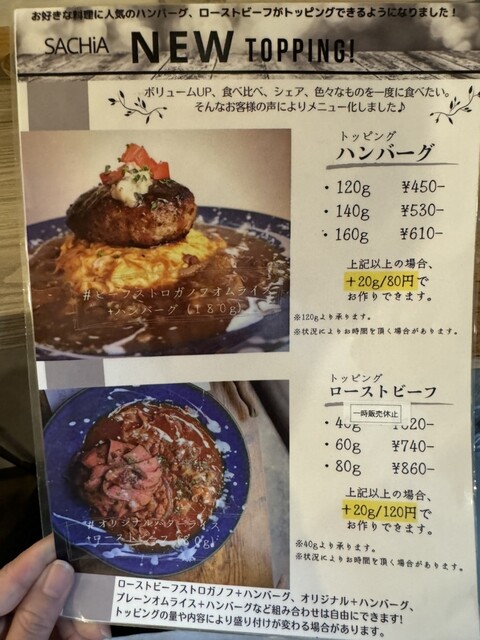 お好きな料理に人気のハンバーグ、ローストビーフがトッピングできるようになりました！
SACHiA NEW TOPPING!
ボリュームUP、食べ比べ、シェア、色々なものを一度に食べたい。
そんなお客様の声によりメニュー化しました♪
トッピング
ハンバーグ
・120g ¥450-
・140g ¥530-
・160g ¥610-
上記以上の場合、
+20g/80円で
お作りできます。
※120gより承ります。
※状況によりお時間を頂く場合があります。
#ビーフストロガノフオムライス
+ハンバーグ(180g)
トッピング
ローストビーフ
一時販売休止
・40g
・60g ¥740-
・80g ¥860-
上記以上の場合、
+20g/120円で
お作りできます。
※40gより承ります。
※状況によりお時間を頂く場合があります。
+ローストビーフ(80g)
ローストビーフストロガノフ+ハンバーグ、オリジナル+ハンバーグ、
プレーンオムライス+ハンバーグなど組み合わせは自由にできます!
トッピングの量や内容により盛り付けが変わる場合があります。